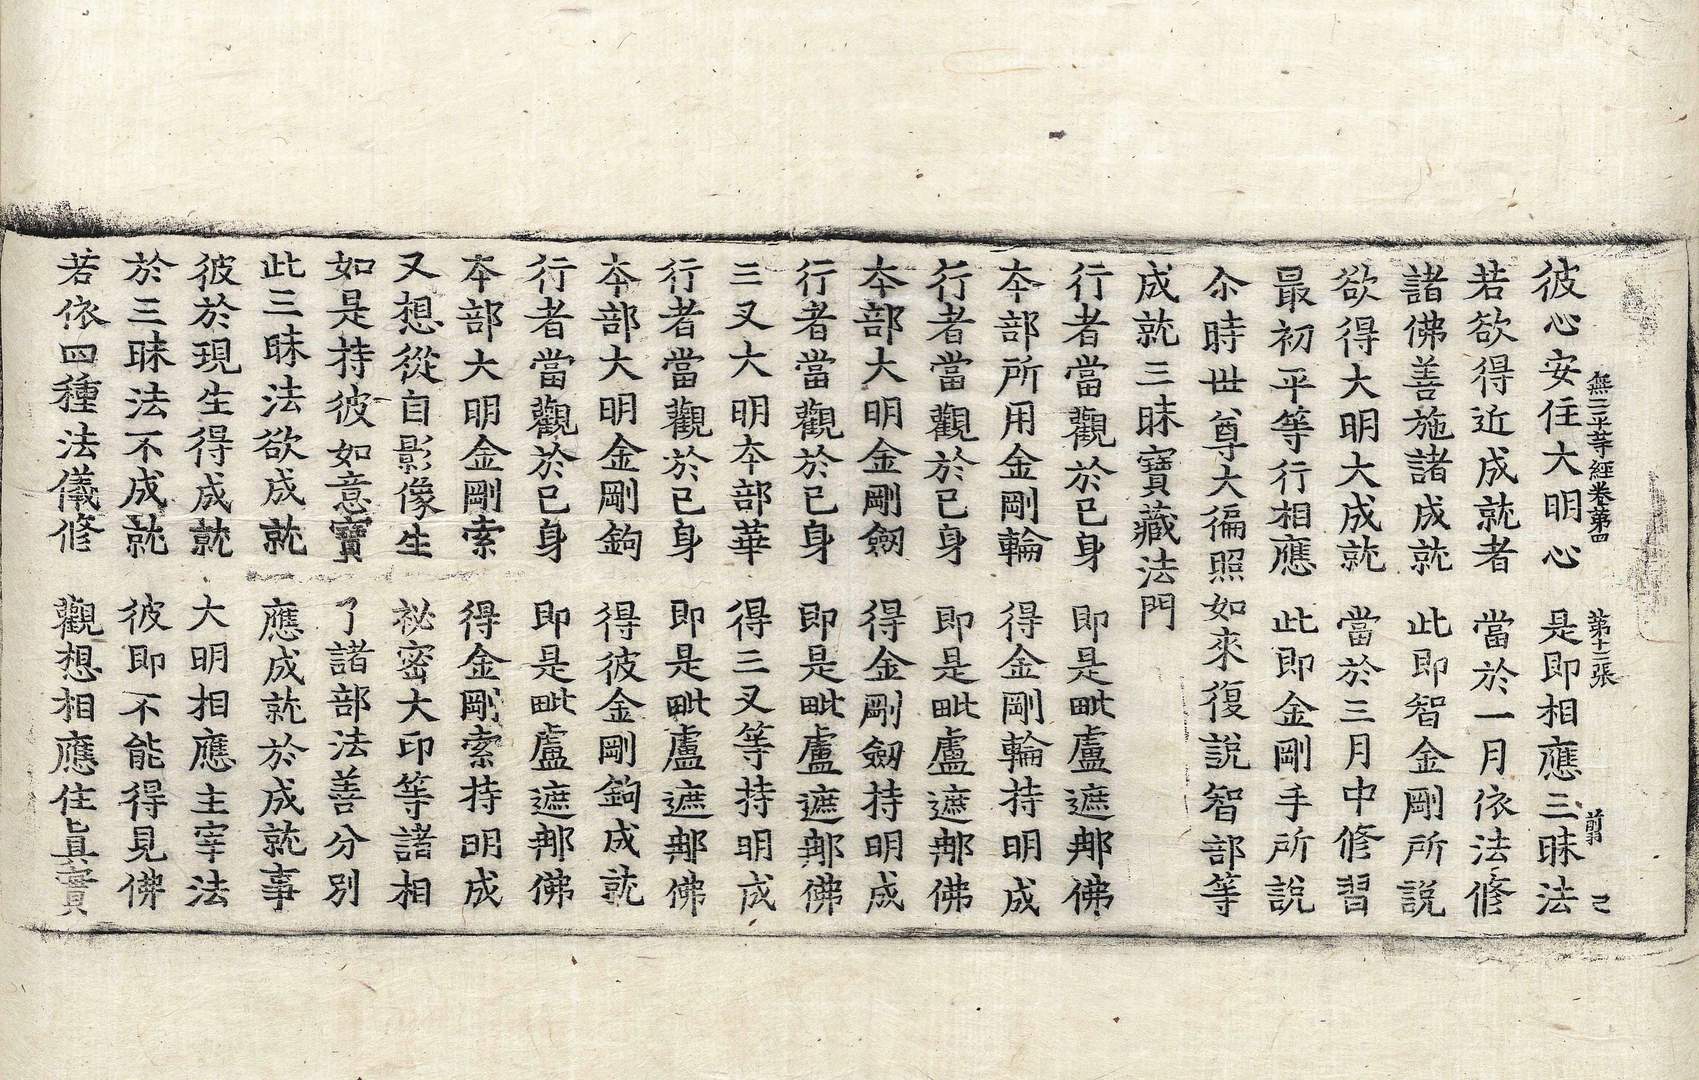 無二平等經卷第四 第十二張 前羽 己
彼心安住大明心 是即相應三昧法
若欲得近成就者 當於一月依法修
諸佛善施諸成就 此即智金剛所説
欲得大明大成就 當於三月中修習
最初平等行相應 此即金剛手所説
尒時世尊大徧照如來復説智部等
成就三昧寶藏法門
行者當觀於己身 即是毗盧遮那佛
本部所用金剛輪 得金剛輪持明成
行者當觀於己身 即是毗盧遮那佛
本部大明金剛劔 得金剛劔持明成
行者當觀於己身 即是毗盧遮那佛
三叉大明本部華 得三叉等持明成
行者當觀於己身 即是毗盧遮那佛
本部大明金剛鉤 得彼金剛鉤成就
行者當觀於己身 即是毗盧遮那佛
本部大明金剛索 得金剛索持明成
又想從自影像生 祕密大印等諸相
如是持彼如意寶 了諸部法善分別
此三昧法欲成就 應成就於成就事
彼於現生得成就 大明相應主宰法
於三昧法不成就 彼即不能得見佛
若依四種法儀修 觀想相應住眞實